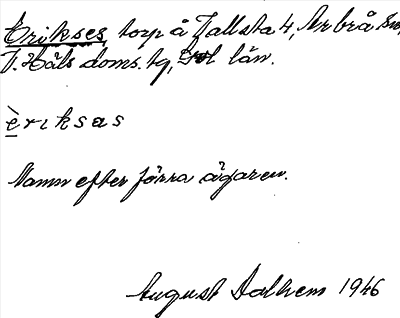 Erikses, torp å Tallsta 4, Arbrå sn,
V. Häls doms. tg, län.
èriksas
Namn efter förra ägaren.
August Dalhem 1946